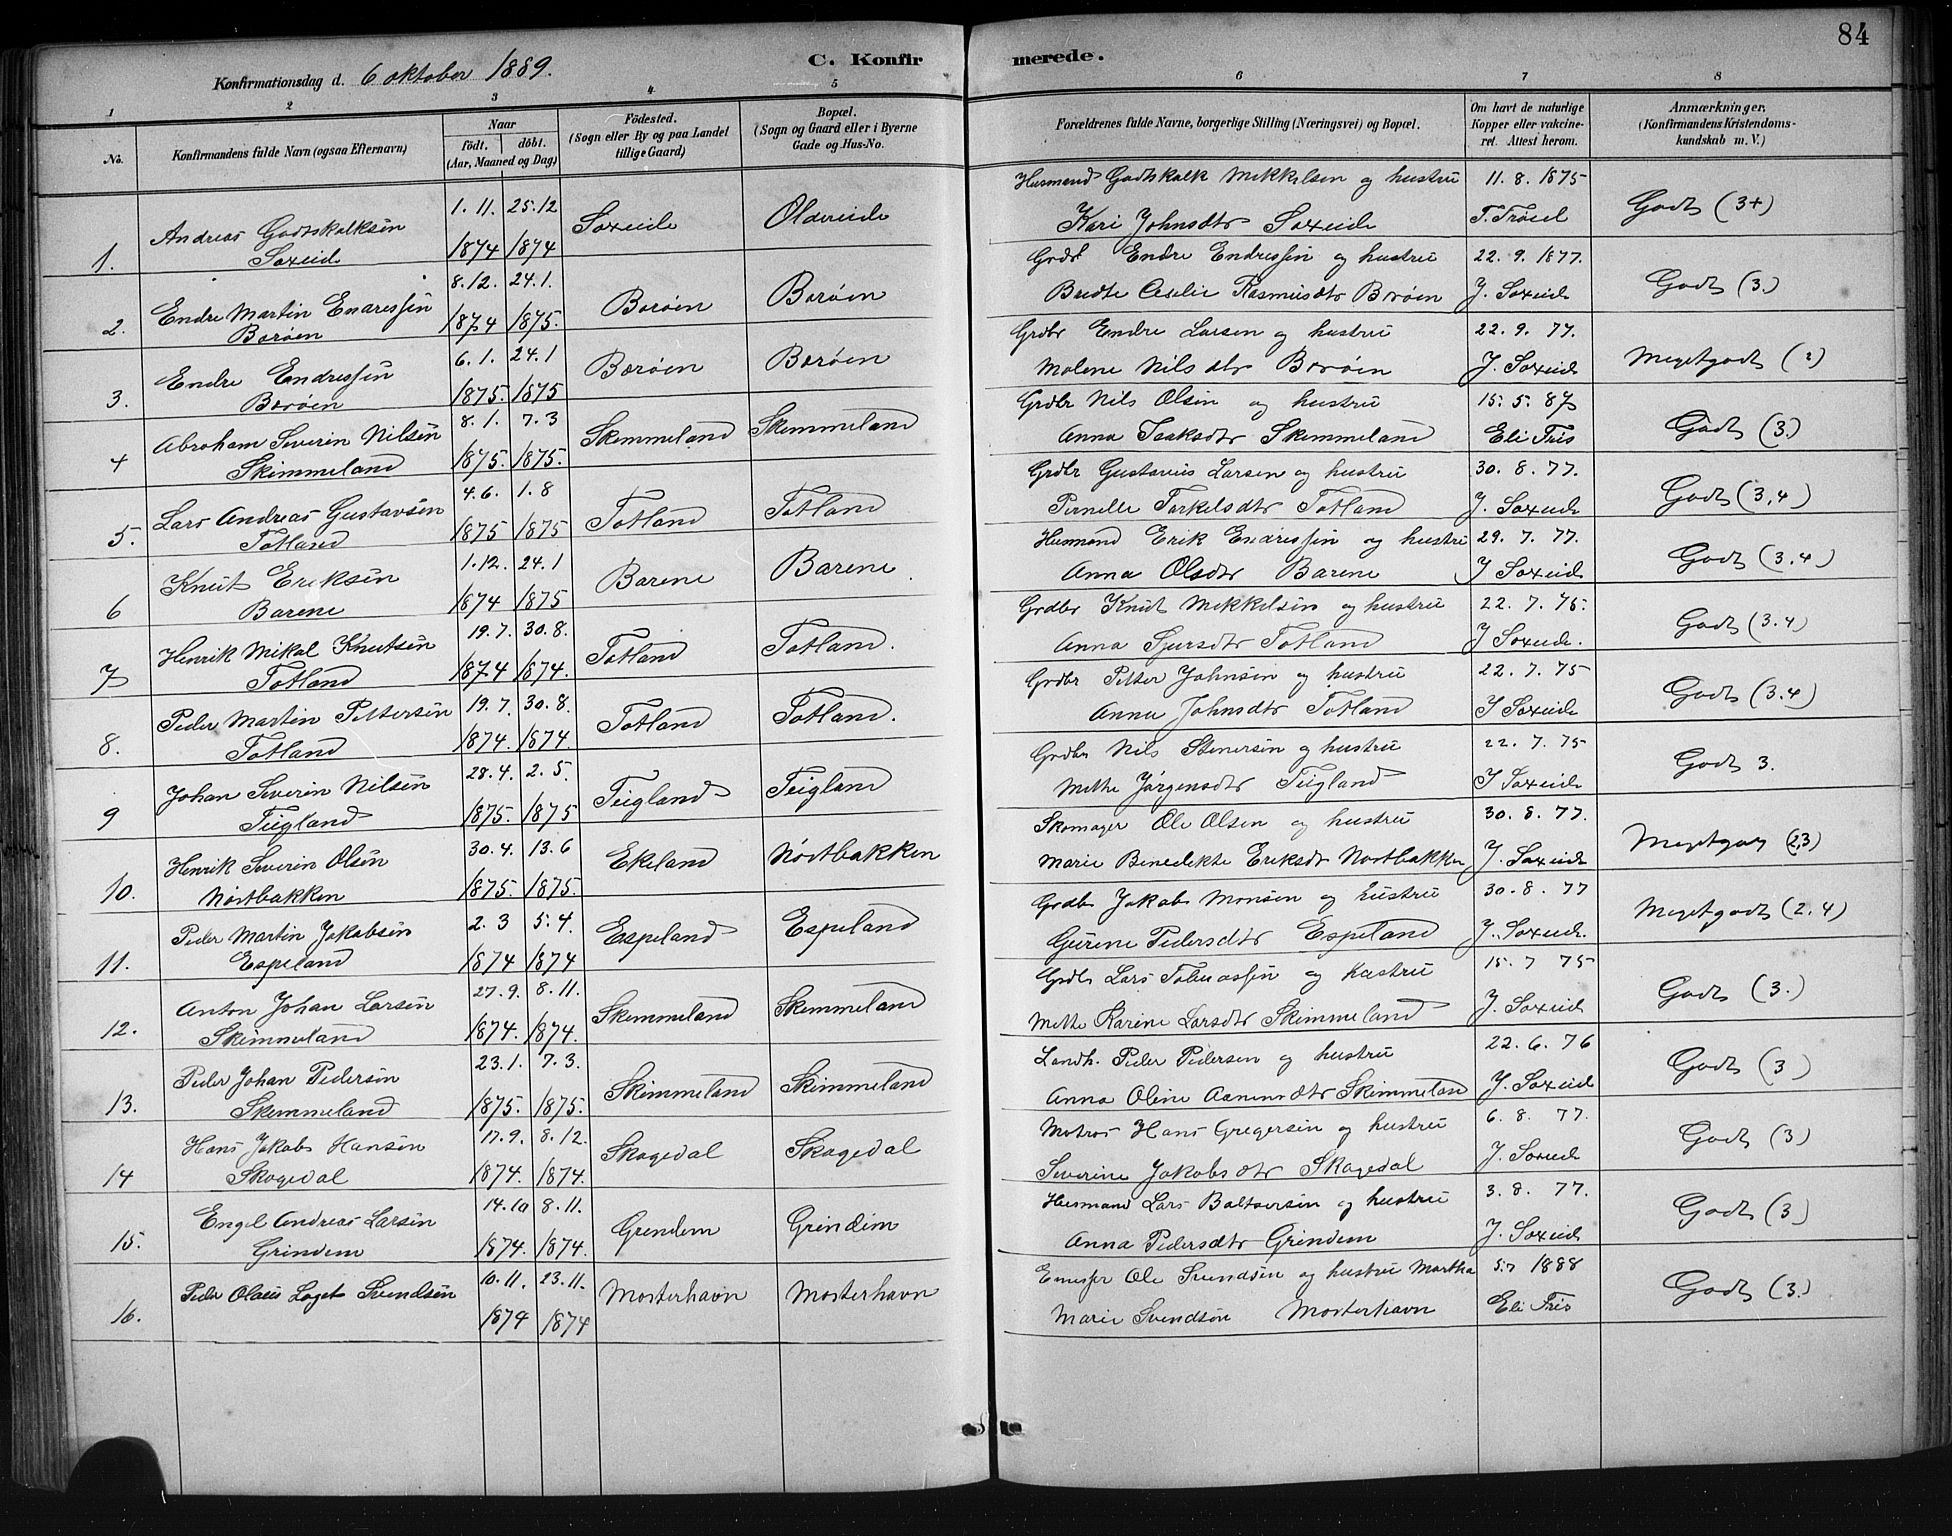 84
C. Konfirmerede.
Konfirmationsdag d. 6 oktober 1889.
1 2 3 4 5 6 7 8
No.
Konfirmandens fulde Navn (ogsaa Efternavn)
Naar
født. døbt.
(Aar, Maaned og Dag)
Fødested.
(Sogn eller By og paa Landet
tillige Gaard)
Bopæl.
(Sogn og Gaard eller i Byerne
Gade og Hus-No.
Forældrenes fulde Navne, borgerlige Stilling (Næringsvei) og Bopæl.
Om havt de naturlige
Kopper eller vakcine-
ret. Attest herom.
Anmærkninger.
(Konfirmandens Kristendoms-
kundskab m. V.)
1. Andreas Godtskalksen Soxeid 1.11. 1874 25.12 1874 Soxeide Oldereide Husmand Godtskalk Mikkelsen og hustru Kari Johnsdtr Soxeide 11.8.1875 Godt (3+)
2. Endre Martin Endressen Borøen 8.12. 1874 24.1. 1875. Borøen Borøen Grdbr Endre Endressen og hustru Bredte Cecelie Rasmusdtr Borøen 22.9.1877. J. Soxeid Godt (3.)
3. Endre Endressen Borøen 6.1. 1875. 24.1 1875 Borøen Borøen Grdbr Endre Larsen og hustru Malene Nilsdtr Borøen 22.9.77. J. Soxeid Megetgodt (2)
4 Abraham Severin Nilsen Skimmeland 8.1. 1875. 7.3 1875. Skemmeland Skemmeland Grdbr Nils Olsen og hustru Anna Isaksdtr Skemmeland 15.5.87 Eli Friis Godt (3.)
5. Lars Andreas Gustavsen Totland 4.6. 1875 1.8 1875 Totland Totland Grdbr Gustavus Larsen og hustru Pernelle Torkelsdtr Totland 30.8.77. J. Soxeid Godt (3,4)
6 Knut Eriksen Barene 1.12. 1874 24.1 1875 Barene Barene Husmand Erik Endressen og hustru Anna Olsdtr Barene 29.7.77. J Soxeid Godt (3.4)
7 Henrik Mikal Knutsen Totland 19.7. 1874 30.8. 1874. Totland Totland. Grdbr Knut Mikkelsen og hustru Anna Sjursdtr Totland 22.7.75. J Soxeid. Godt (3.4)
8. Peder Martin Pettersen Totland 19.7. 1874. 30.8. 1874. Totland Totland. Grdbr Petter Johnsen og hustru Anna Johnsdtr Totland 22.7.75 J Soxeid Godt (3.4)
9 Johan Severin Nilsen Teigland 28.4. 1875. 2.5. 1875 Teigland Teigland Grdbr Nils Stenersen og hustru Mette Jørgensdtr Teigland 22.7.75 J Soxeid Godt 3.
10. Henrik Severin Olsen Nostbakken 30.4. 1875. 13.6 1875. Ekeland Nostbakken Skomager Ole Olsen og hustru Marie Benedikte Eriksdtr Nostbakken 30.8.77. J. Soxeid Megetgodt (2,3)
11. Peder Martin Jakobsen Espeland 2.3 1874 5.4. 1874 Espeland Espeland Grdbr Jakob Monsen og hustru Gurine Pedersdtr Espeland 30.8.77 J. Soxeid. Megetgodt (2.4)
12. Anton Johan Larsen Skimmeland 27.9. 1874. 8.11. 1874. Skemmeland Skemmeland Grdbr Lars Tobiassen og hustru Mette Karine Larsdtr Skimmeland 15.7 75 J. Soxeid Godt (3.)
13. Peder Johan Pedersen Skemmeland 23.1. 1875. 7.3. 1875. Skimmeland Skimmeland Landh. Peder Pedersen og hustru Anna Oline Aanensdtr Skimmeland 22.6.76 J. Soxeid Godt (3)
14 Hans Jakob Hansen Skagedal 17.9. 1874. 8.12. 1874. Skagedal Skagedal Matros Hans Gregersen og hustru Severine Jakobsdtr Skagedal 6.8.77. J. Soxeid Godt (3)
15. Engel Andreas Larsen Grindem 14.10 1874. 8.11. 1874. Grendem Grindem Husmand Lars Baltsersen og hustru Anna Pedersdtr Grindem 3.8.77. J. Soxeid Godt (3)
16. Peder Olaus Svendsen 10.11. 1874 23.11. 1874 Mosterhavn Mosterhavn Ole Svendsen og hustru Martha Marie Svendsen Mosterhavn 5.7 1888 Eli Friis Godt (3.)